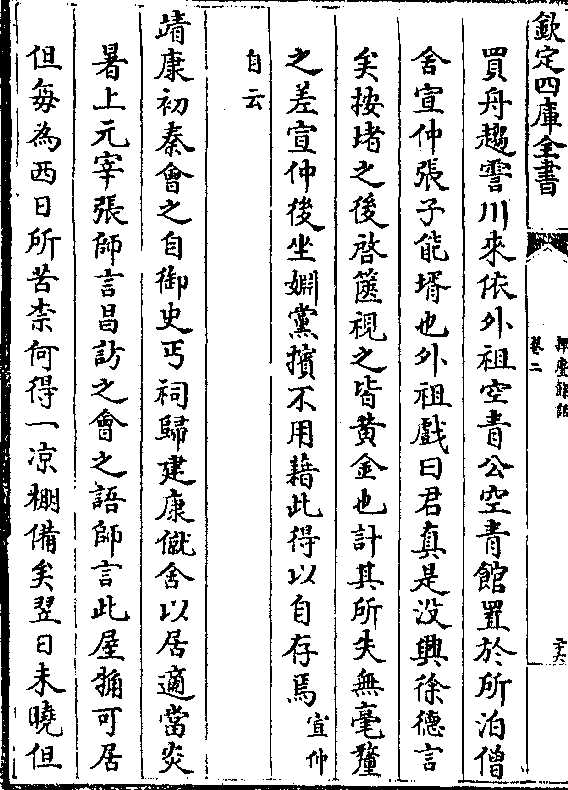 欽定四庫全書
揮麈餘話
卷二
買舟趨霅川來依外祖空青公空青館置於所泊僧
舍宣仲張子能壻也外祖戲曰君真是没興徐德言
矣按堵之後啓篋視之皆黄金也計其所失無毫釐
之差宣仲後坐婣黨擯不用藉此得以自存焉宣仲
自云
靖康初秦會之自御史丐祠歸建康僦舍以居適當炎
暑上元宰張師言昌訪之會之語師言此屋粗可居
但每為西日所苦柰何得一凉棚備矣翌日未曉但